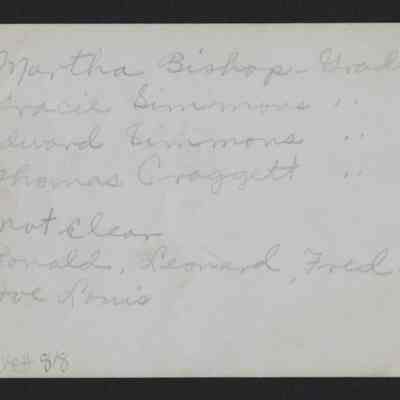 Martha Bishop - Grad
Gracie Simmons "
Edward Simmons "
Thomas Craggett "
not clear
Ronald, Leonard, Fred
Louis
818